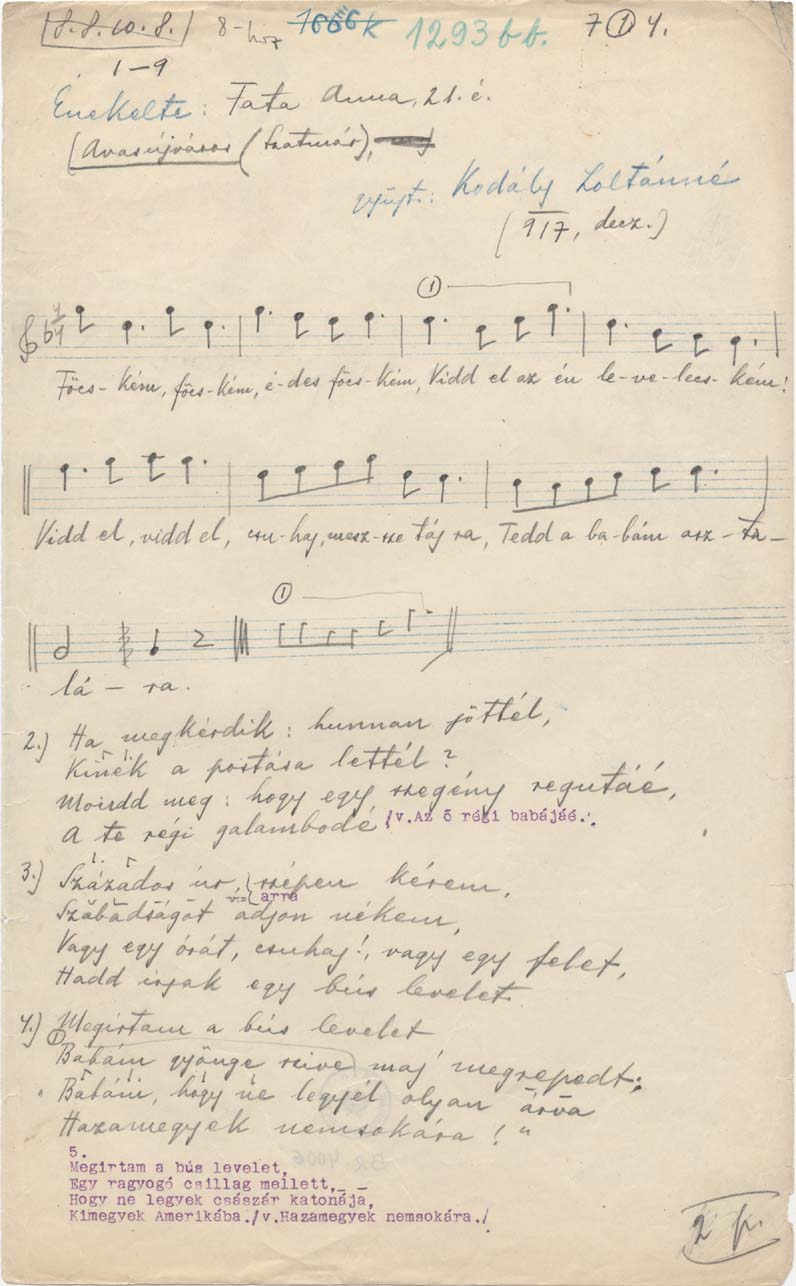 8. 8. 10. 8. 8-hoz 1666k 1293 bb. 7 ① 4.
1–9
Énekelte: Tata Anna, 21. é.
(Avasújváros (Szatmár),
gyűjt.: Kodály Zoltánné
(917, decz.)
①
4/4
Föcs-kém, föcs-kém, é-des föcs-kém, Vidd el az én le-ve-lecs-kém!
Vidd el, vidd el, csu-haj, mesz-sze táj ra, Tedd a ba-bám asz-ta-
①
lá-ra.
2.) Ha megkérdik: hunnan jöttél,
Kinek a postása lettél?
Moirdd meg: hogy egy szegény regutáé,
A te régi galambodé /v.Az ő régi babájáé./
3.) Százados úr, szépen kérem,
v= arra
Szabadságot adjon nékem,
Vagy egy órát, csuhaj!, vagy egy felet,
Hadd irjak egy bús levelet.
4.) Megirtam a bús levelet
① Babám gyönge szive maj' megrepedt;
"Babám, hogy ne legyél olyan árva
Hazamegyek nemsokára!"
5.
Megirtam a bús levelet,
Egy ragyogó csillag mellett,
Hogy ne legyek császár katonája,
Kimegyek Amerikába./v.Hazamegyek nemsokára./
BR 4006
2 p.